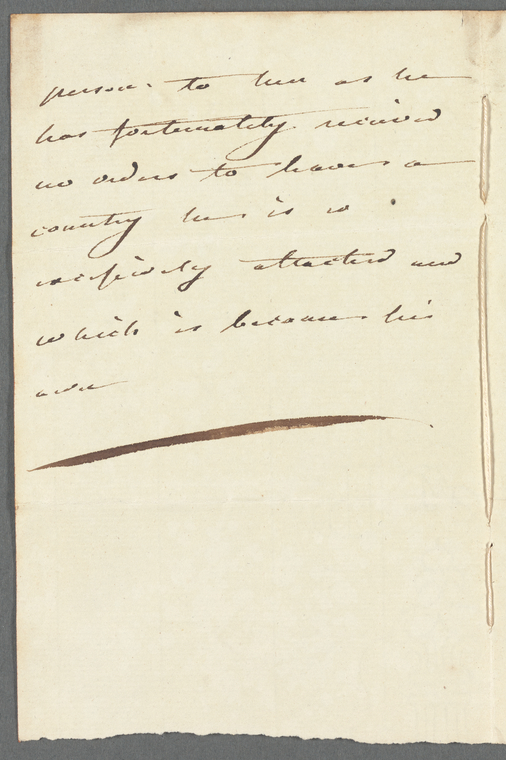 person. to her as he
has fortunatelty received
no orders to leave a
country he is so
excessively attached and
which is become his
own